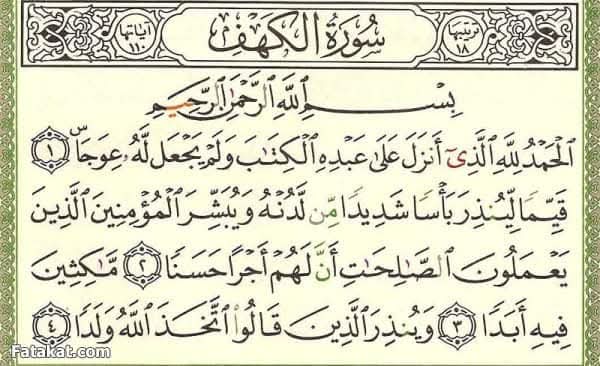 ترتيبها ١٨
سُورَةُ الْكَهْفِ
آياتها ١١٠
بِسْمِ اللَّهِ الرَّحْمَٰنِ الرَّحِيمِ
الْحَمْدُ لِلَّهِ الَّذِي أَنزَلَ عَلَىٰ عَبْدِهِ الْكِتَابَ وَلَمْ يَجْعَل لَّهُ عِوَجًاۜ ١
قَيِّمًا لِّيُنذِرَ بَأْسًا شَدِيدًا مِّن لَّدُنْهُ وَيُبَشِّرَ الْمُؤْمِنِينَ الَّذِينَ
يَعْمَلُونَ الصَّالِحَاتِ أَنَّ لَهُمْ أَجْرًا حَسَنًا ٢ مَّاكِثِينَ
فِيهِ أَبَدًا ٣ وَيُنذِرَ الَّذِينَ قَالُوا اتَّخَذَ اللَّهُ وَلَدًا ٤
Fatakat.com